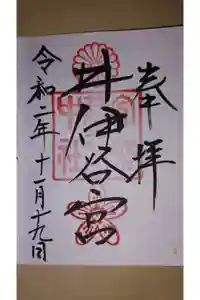 奉拝
井伊谷宮
令和二年十一月十九日